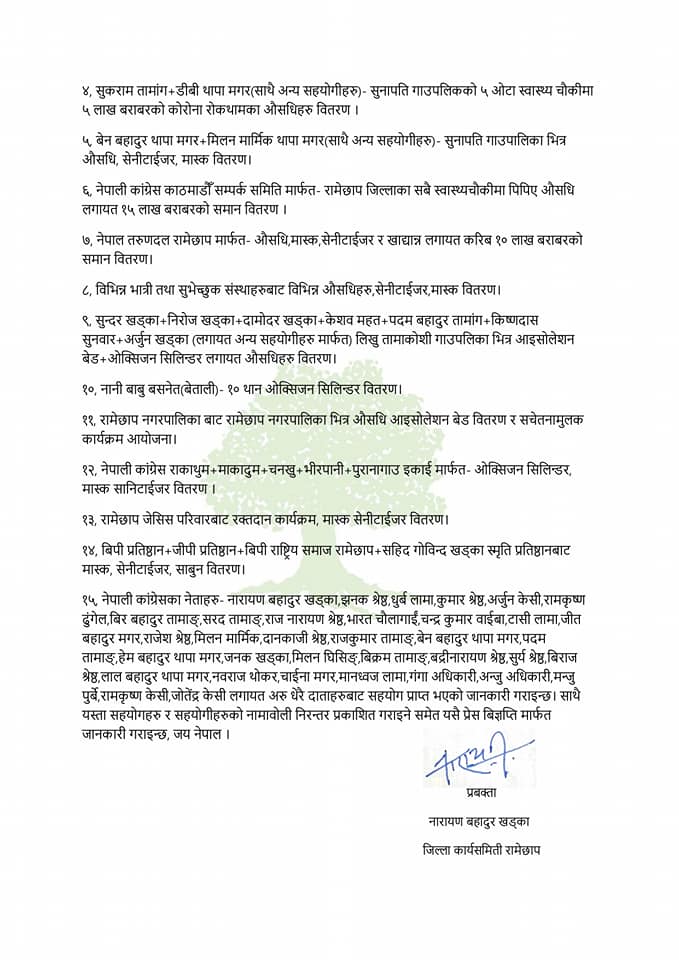 ४, सुकराम तामांग+डीबी थापा मगर(साथै अन्य सहयोगीहरु)- सुनापति गाउपलिकको ५ ओटा स्वास्थ्य चौकीमा
५ लाख बराबरको कोरोना रोकथामका औसधिहरु वितरण ।
५, बेन बहादुर थापा मगर+मिलन मार्मिक थापा मगर(साथै अन्य सहयोगीहरु)- सुनापति गाउपालिका भित्र
औसधि, सेनीटाईजर, मास्क वितरण।
६, नेपाली कांग्रेस काठमाडौँ सम्पर्क समिति मार्फत- रामेछाप जिल्लाका सबै स्वास्थ्यचौकीमा पिपिए औसधि
लगायत १५ लाख बराबरको समान वितरण ।
७, नेपाल तरुणदल रामेछाप मार्फत- औसधि,मास्क,सेनीटाईजर र खाद्यान्न लगायत करिब १० लाख बराबरको
समान वितरण।
८, विभिन्न भात्री तथा सुभेच्छुक संस्थाहरुबाट विभिन्न औसधिहरु,सेनीटाईजर,मास्क वितरण।
९, सुन्दर खड्का+निरोज खड्का+दामोदर खड्का+केशव महत+पदम बहादुर तामांग+किष्णदास
सुनवार+अर्जुन खड्का (लगायत अन्य सहयोगीहरु मार्फत) लिखु तामाकोशी गाउपलिका भित्र आइसोलेशन
बेड+ओक्सिजन सिलिन्डर लगायत औसधिहरु वितरण।
१०, नानी बाबु बसनेत(बेताली)- १० थान ओक्सिजन सिलिन्डर वितरण।
११, रामेछाप नगरपालिका बाट रामेछाप नगरपालिका भित्र औसधि आइसोलेशन बेड वितरण र सचेतनामुलक
कार्यक्रम आयोजना।
१२, नेपाली कांग्रेस राकाथुम+माकादुम+चनखु+भीरपानी+पुरानागाउ इकाई मार्फत- ओक्सिजन सिलिन्डर,
मास्क सानिटाईजर वितरण ।
१३, रामेछाप जेसिस परिवारबाट रक्तदान कार्यक्रम, मास्क सेनीटाईजर वितरण।
१४, बिपी प्रतिष्ठान+जीपी प्रतिष्ठान+बिपी राष्ट्रिय समाज रामेछाप+सहिद गोविन्द खड्का स्मृति प्रतिष्ठानबाट
मास्क, सेनीटाईजर, साबुन वितरण।
१५, नेपाली कांग्रेसका नेताहरु- नारायण बहादुर खड्का,झनक श्रेष्ठ,धुर्ब लामा,कुमार श्रेष्ठ,अर्जुन केसी,रामकृष्ण
ढुंगेल,बिर बहादुर तामाङ्,सरद तामाङ्,राज नारायण श्रेष्ठ,भारत चौलागाईं,चन्द्र कुमार वाईबा,टासी लामा,जीत
बहादुर मगर,राजेश श्रेष्ठ,मिलन मार्मिक,दानकाजी श्रेष्ठ,राजकुमार तामाङ्,बेन बहादुर थापा मगर,पदम
तामाङ्,हेम बहादुर थापा मगर,जनक खड्का,मिलन घिसिङ्,बिक्रम तामाङ्,बद्रीनारायण श्रेष्ठ,सुर्य श्रेष्ठ,बिराज
श्रेष्ठ,लाल बहादुर थापा मगर,नवराज थोकर,चाईना मगर,मानध्वज लामा,गंगा अधिकारी,अन्जु अधिकारी,मन्जु
पुर्बे,रामकृष्ण केसी,जोतेंद्र केसी लगायत अरु धेरै दाताहरुबाट सहयोग प्राप्त भएको जानकारी गराइन्छ। साथै
यस्ता सहयोगहरु र सहयोगीहरुको नामावोली निरन्तर प्रकाशित गराइने समेत यसै प्रेस बिज्ञप्ति मार्फत
जानकारी गराइन्छ, जय नेपाल ।
प्रबक्ता
नारायण बहादुर खड्का
जिल्ला कार्यसमिती रामेछाप